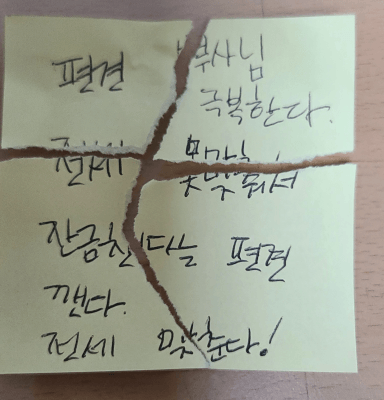 편견 부사님
극복한다.
전세 못맞춰서
잔금친다는 편견
깬다.
전세 맞춘다!